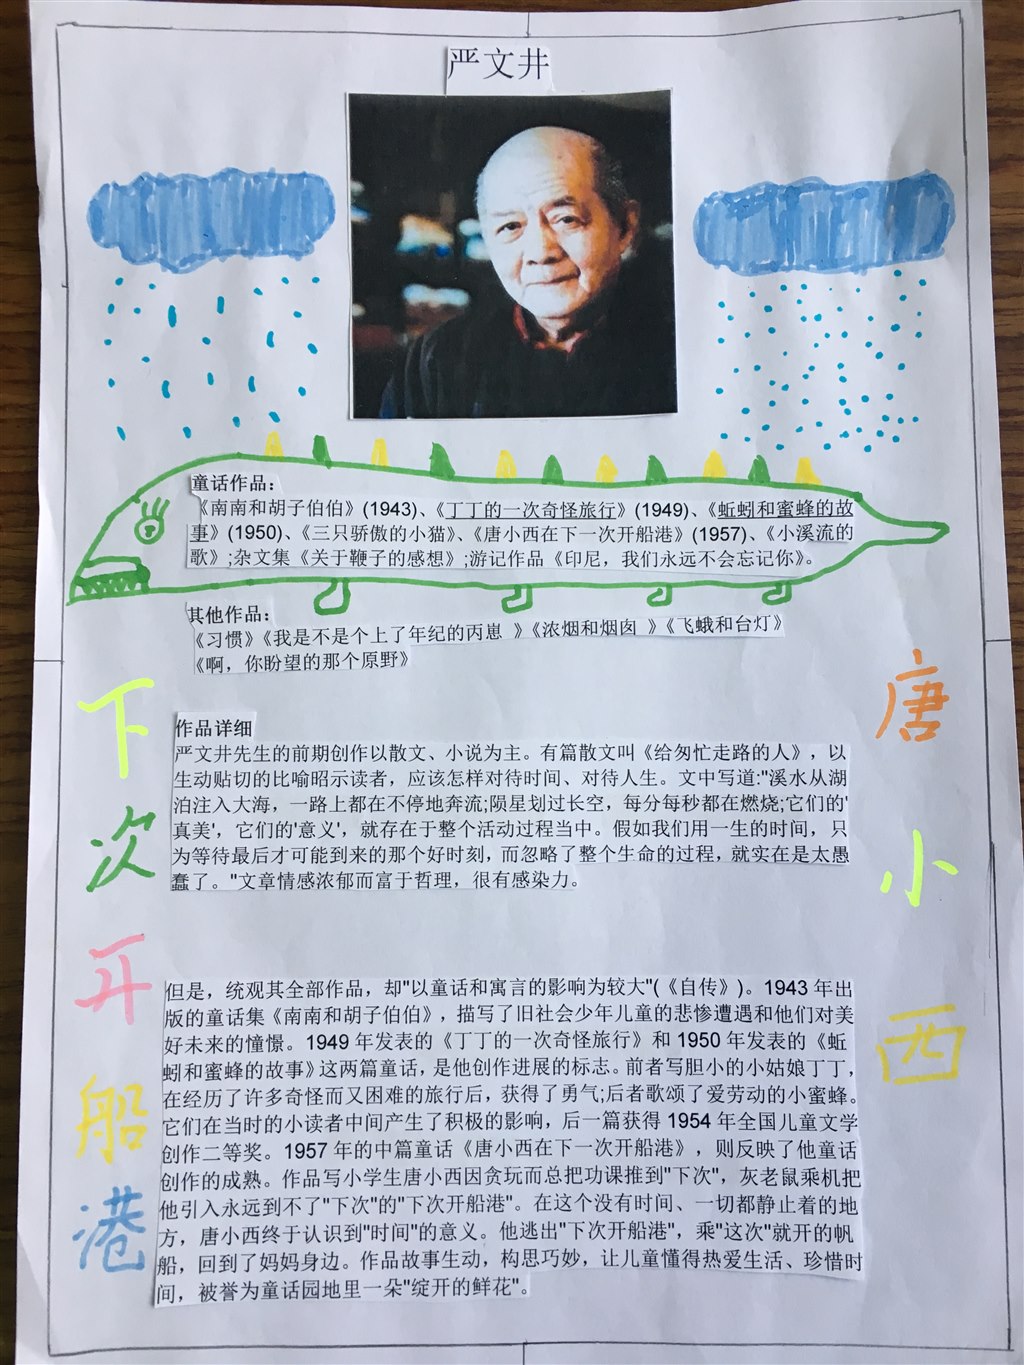 严文井
童话作品：
《南南和胡子伯伯》(1943)、《丁丁的一次奇怪旅行》(1949)、《蚯蚓和蜜蜂的故
事》(1950)、《三只骄傲的小猫》、《唐小西在下一次开船港》(1957)、《小溪流的
歌》;杂文集《关于鞭子的感想》;游记作品《印尼，我们永远不会忘记你》。
其他作品：
《习惯》《我是不是个上了年纪的丙崽 》《浓烟和烟囱 》《飞蛾和台灯》
《啊，你盼望的那个原野》
作品详细
严文井先生的前期创作以散文、小说为主。有篇散文叫《给匆忙走路的人》，以
生动贴切的比喻昭示读者，应该怎样对待时间、对待人生。文中写道:"溪水从湖
泊注入大海，一路上都在不停地奔流;陨星划过长空，每分每秒都在燃烧;它们的'
真美'，它们的'意义'，就存在于整个活动过程当中。假如我们用一生的时间，只
为等待最后才可能到来的那个好时刻，而忽略了整个生命的过程，就实在是太愚
蠢了。"文章情感浓郁而富于哲理，很有感染力。
但是，统观其全部作品，却"以童话和寓言的影响为较大"(《自传》)。1943 年出
版的童话集《南南和胡子伯伯》，描写了旧社会少年儿童的悲惨遭遇和他们对美
好未来的憧憬。1949 年发表的《丁丁的一次奇怪旅行》和 1950 年发表的《蚯
蚓和蜜蜂的故事》这两篇童话，是他创作进展的标志。前者写胆小的小姑娘丁丁，
在经历了许多奇怪而又困难的旅行后，获得了勇气;后者歌颂了爱劳动的小蜜蜂。
它们在当时的小读者中间产生了积极的影响，后一篇获得 1954 年全国儿童文学
创作二等奖。1957 年的中篇童话《唐小西在下一次开船港》，则反映了他童话
创作的成熟。作品写小学生唐小西因贪玩而总把功课推到"下次"，灰老鼠乘机把
他引入永远到不了"下次"的"下次开船港"。在这个没有时间、一切都静止着的地
方，唐小西终于认识到"时间"的意义。他逃出"下次开船港"，乘"这次"就开的帆
船，回到了妈妈身边。作品故事生动，构思巧妙，让儿童懂得热爱生活、珍惜时
间，被誉为童话园地里一朵"绽开的鲜花"。
唐小西
下次开船港